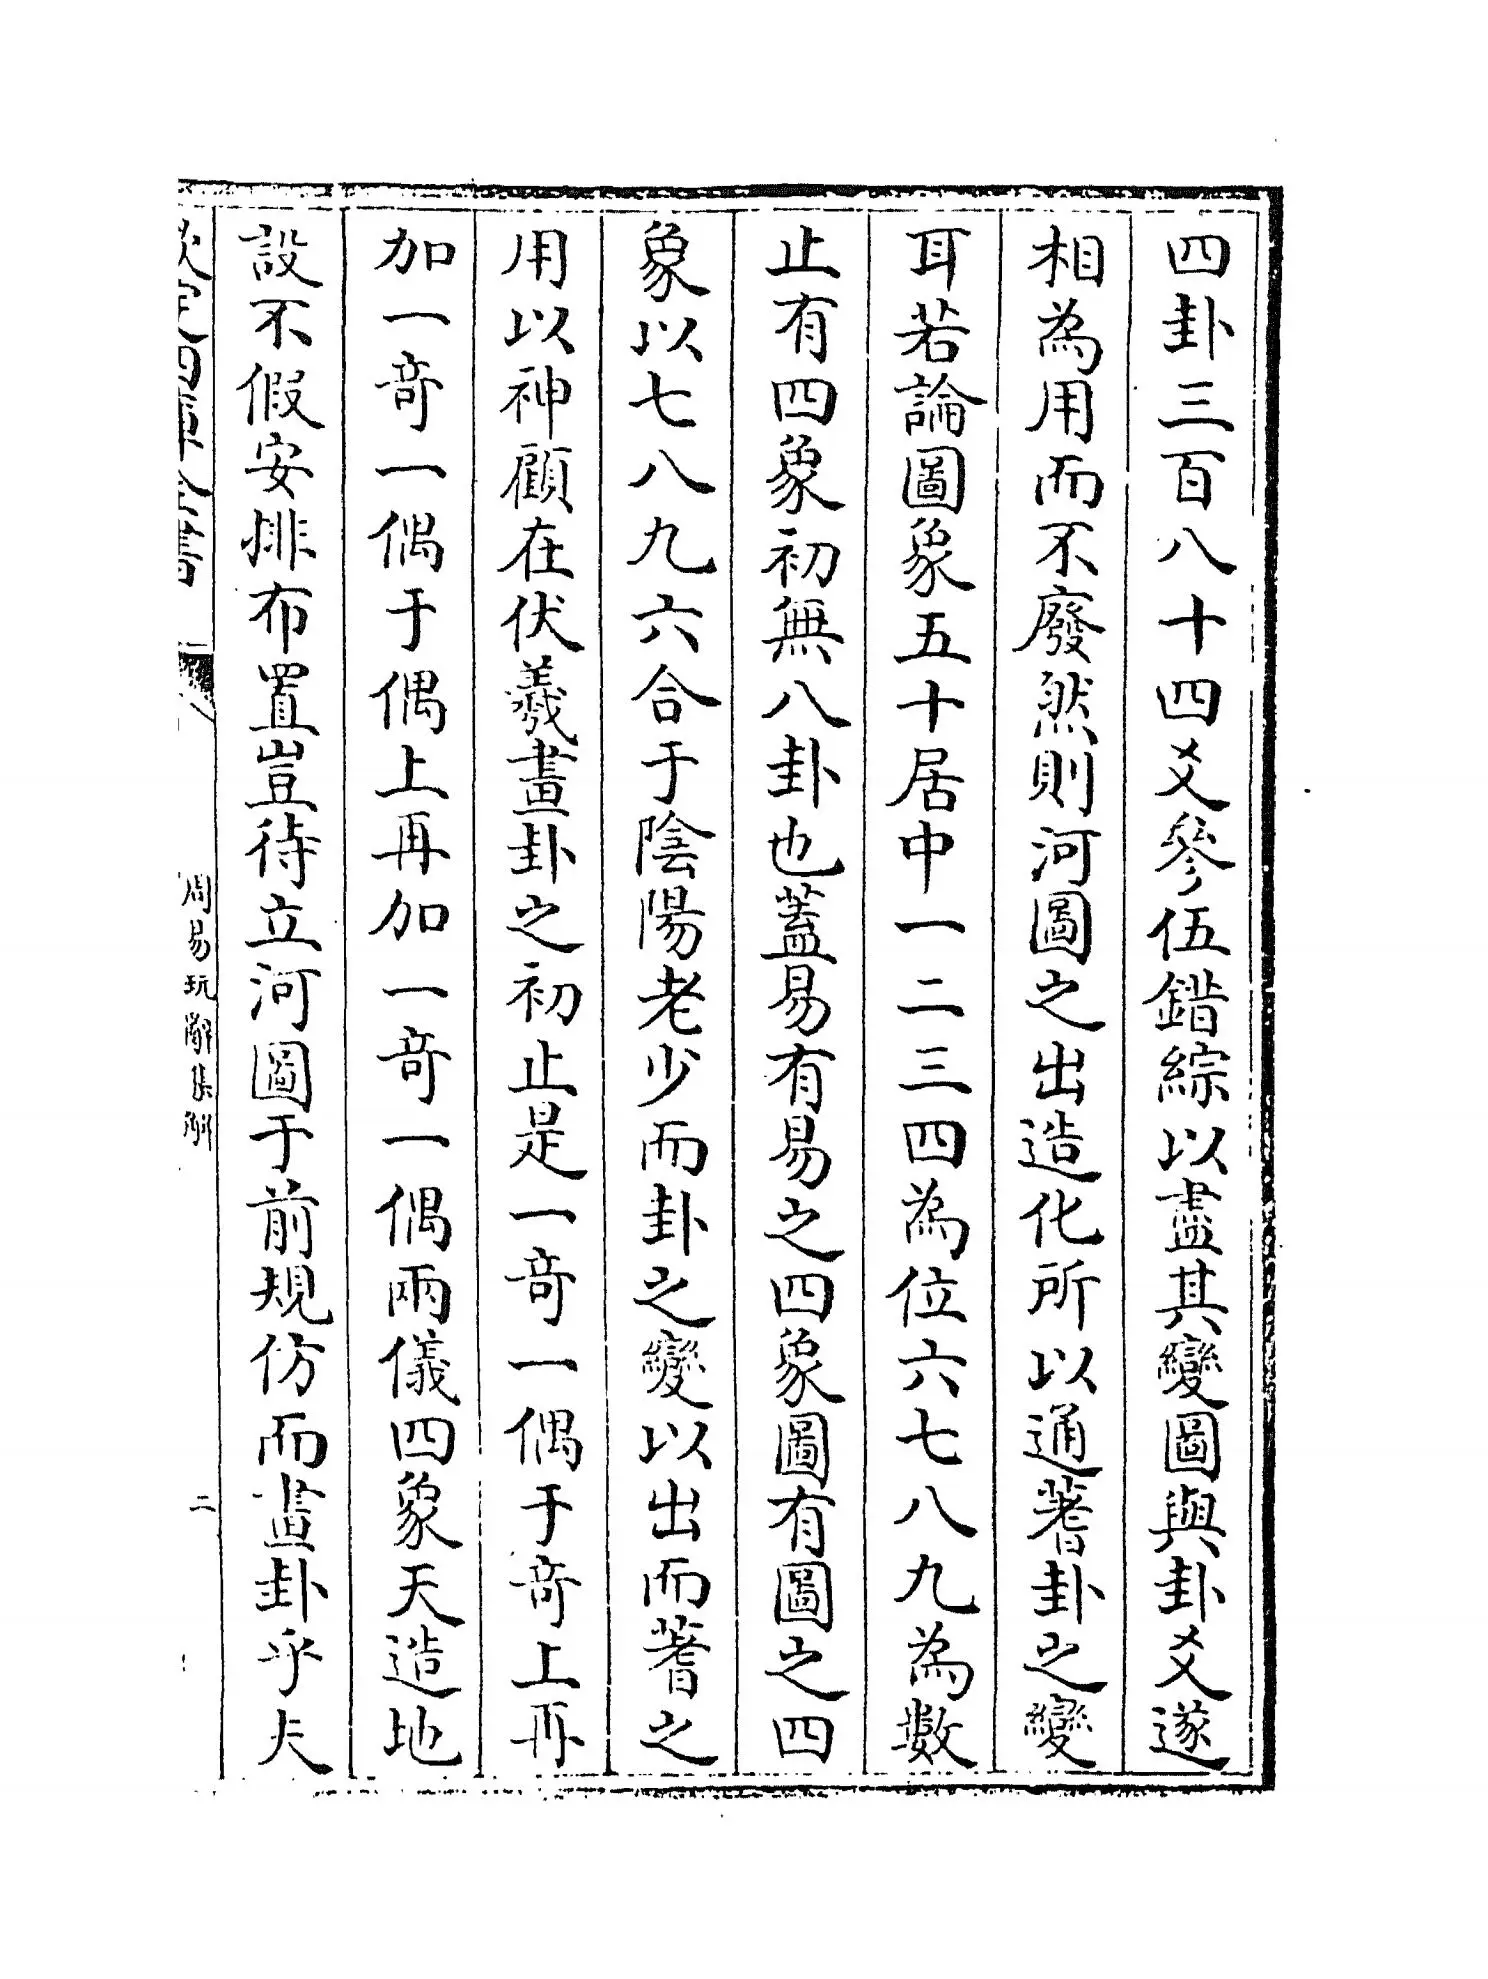 四卦三百八十四爻參伍錯綜以盡其變圖與卦爻遂
相為用而不廢然則河圖之出造化所以通蓍卦之變
耳若論圖象五十居中一二三四為位六七八九為數
止有四象初無八卦也蓋易有易之四象圖有圖之四
象以七八九六合于陰陽老少而卦之變以出而蓍之
用以神顧在伏羲畫卦之初止是一奇一偶于奇上再
加一奇一偶于偶上再加一奇一偶兩儀四象天造地
設不假安排布置豈待立河圖于前規仿而畫卦乎夫
欽定四庫全書
周易玩辭集解
二